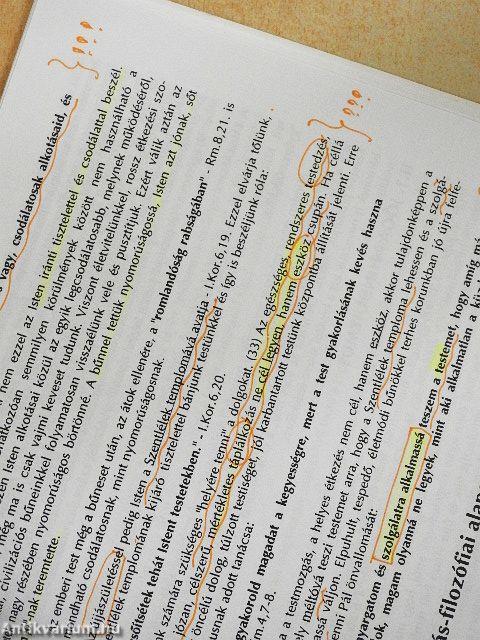 vagy csodálatosak alkotásaid, és
nem ezzel az isten iránti tisztelettel és csodálattal beszél.
semmilyen körülmények között nem használható a
szen Isten alkotásai közül az egyik legcsodálatosabb, melynek működéséről,
még ma is csak vajmi keveset tudunk. Viszont életvitelünkkel, rossz étkezési szo-
civilizációs bűneinkkel folyamatosan visszaélünk vele és pusztítjuk. Ezért válik aztán az
nagy részében nyomorúságos börtönné. A bűnnel tettük nyomorúságossá, isten azt jónak, sőt
nak teremtette.
emberi test még a bűneset után, az átok ellenére, a "romlandóság rabságában" - Rm.8,21. is
ható csodálatosnak, mint nyomorúságosnak.
újjászületéssel pedig isten a Szentlélek templomává avatja - I.Kor.6,19. Ezzel elvárja tőlünk,
templomának kijáró tisztelettel bánjunk testünkkel és így is beszéljünk róla:
sítsétek tehát Istent testetekben." - I.Kor.6,20.
számára szükséges "helyére tenni" a dolgokat (33) Az egészséges, rendszeres testedzés,
józan, célszerű, mértékletes táplálkozás ne cél legyen, hanem eszköz csupán. Ha céllá
öncélú dolog, túlzott testiséget, jól karbantartott testünk központba állítását jelenti. Erre
usnak adott tanácsa:
gyakorold magadat a kegyességre, mert a test gyakorlásának kevés haszna
4,7-8.
a testmozgás, a helyes étkezés nem cél, hanem eszköz, akkor tulajdonképpen a
méltóvá teszi testemet arra, hogy a Szentlélek temploma lehessen és a szolgá-
váljon. Elpuhult, tespedő, életmódi bűnökkel terhes korunkban jó újra felfe-
ni Pál önvallomását:
nyargatom és szolgálatra alkalmassá teszem a testemet, hogy amíg má-
k, magam olyanná ne legyek, mint aki alkalmatlan a
s-filozófiai alap
Antikvarium.hu